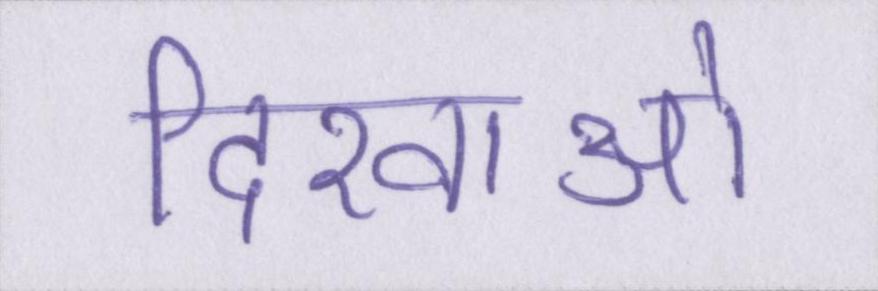 दिखाओ